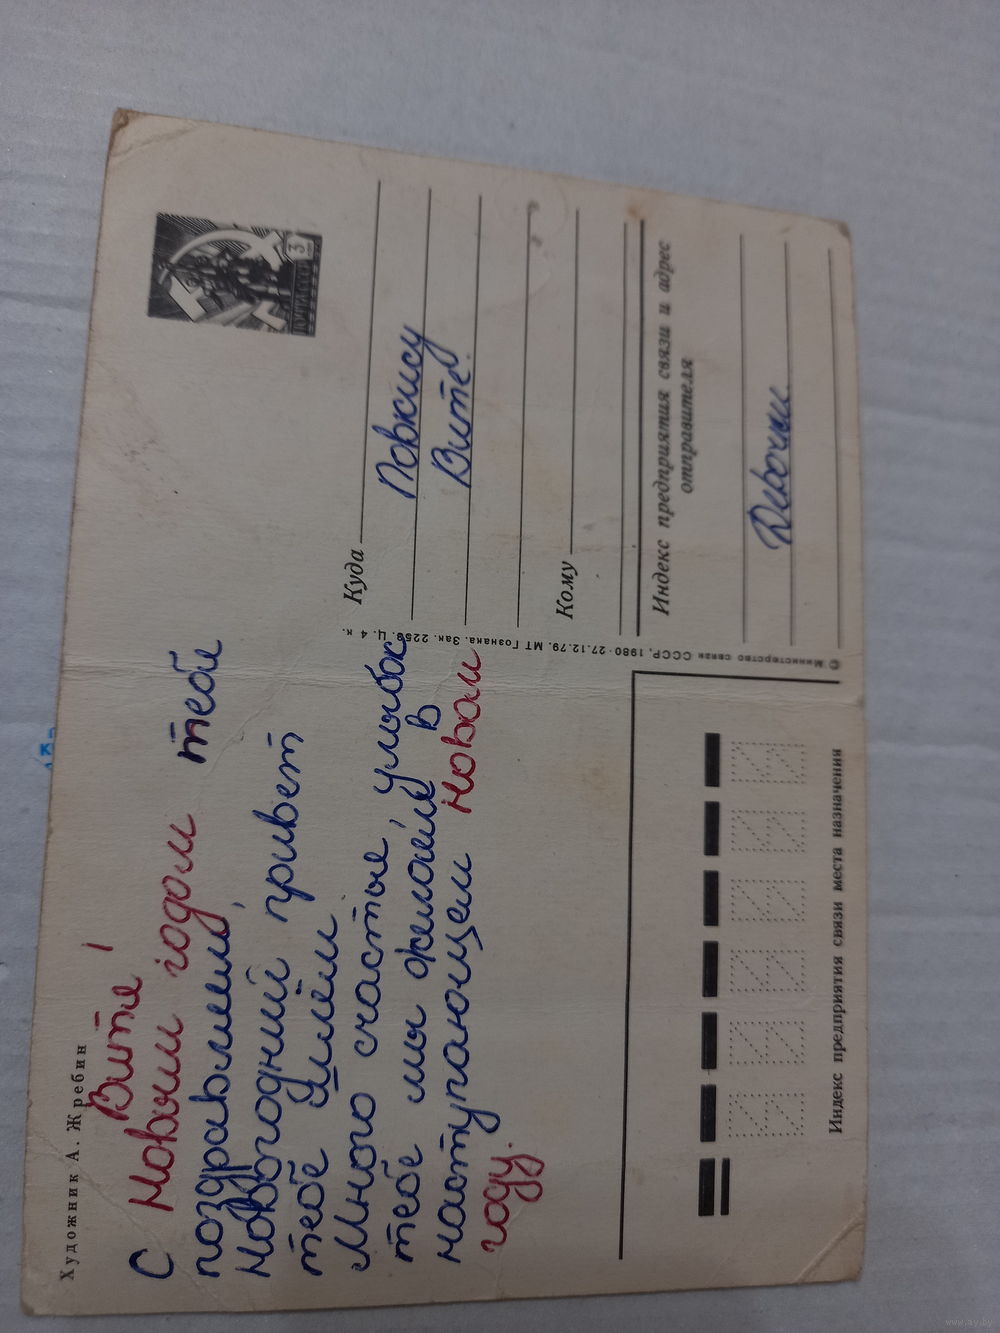 Художник А. Жребин
Витя!
С Новым годом тебе
поздравляем,
Новогодний привет
тебе шлём.
Много счастья, улыбок
тебе мы желаем в
наступающем новом
году.
ПОЧТА СССР 3
Куда
Повкису
Вите.
Кому
Индекс предприятия связи и адрес
отправителя
Девочки
© Министерство связи СССР, 1980 · 27.12.79. МТ Гознака. Зак. 2259. Ц. 4 к.
Индекс предприятия связи места назначения
www.ay.by